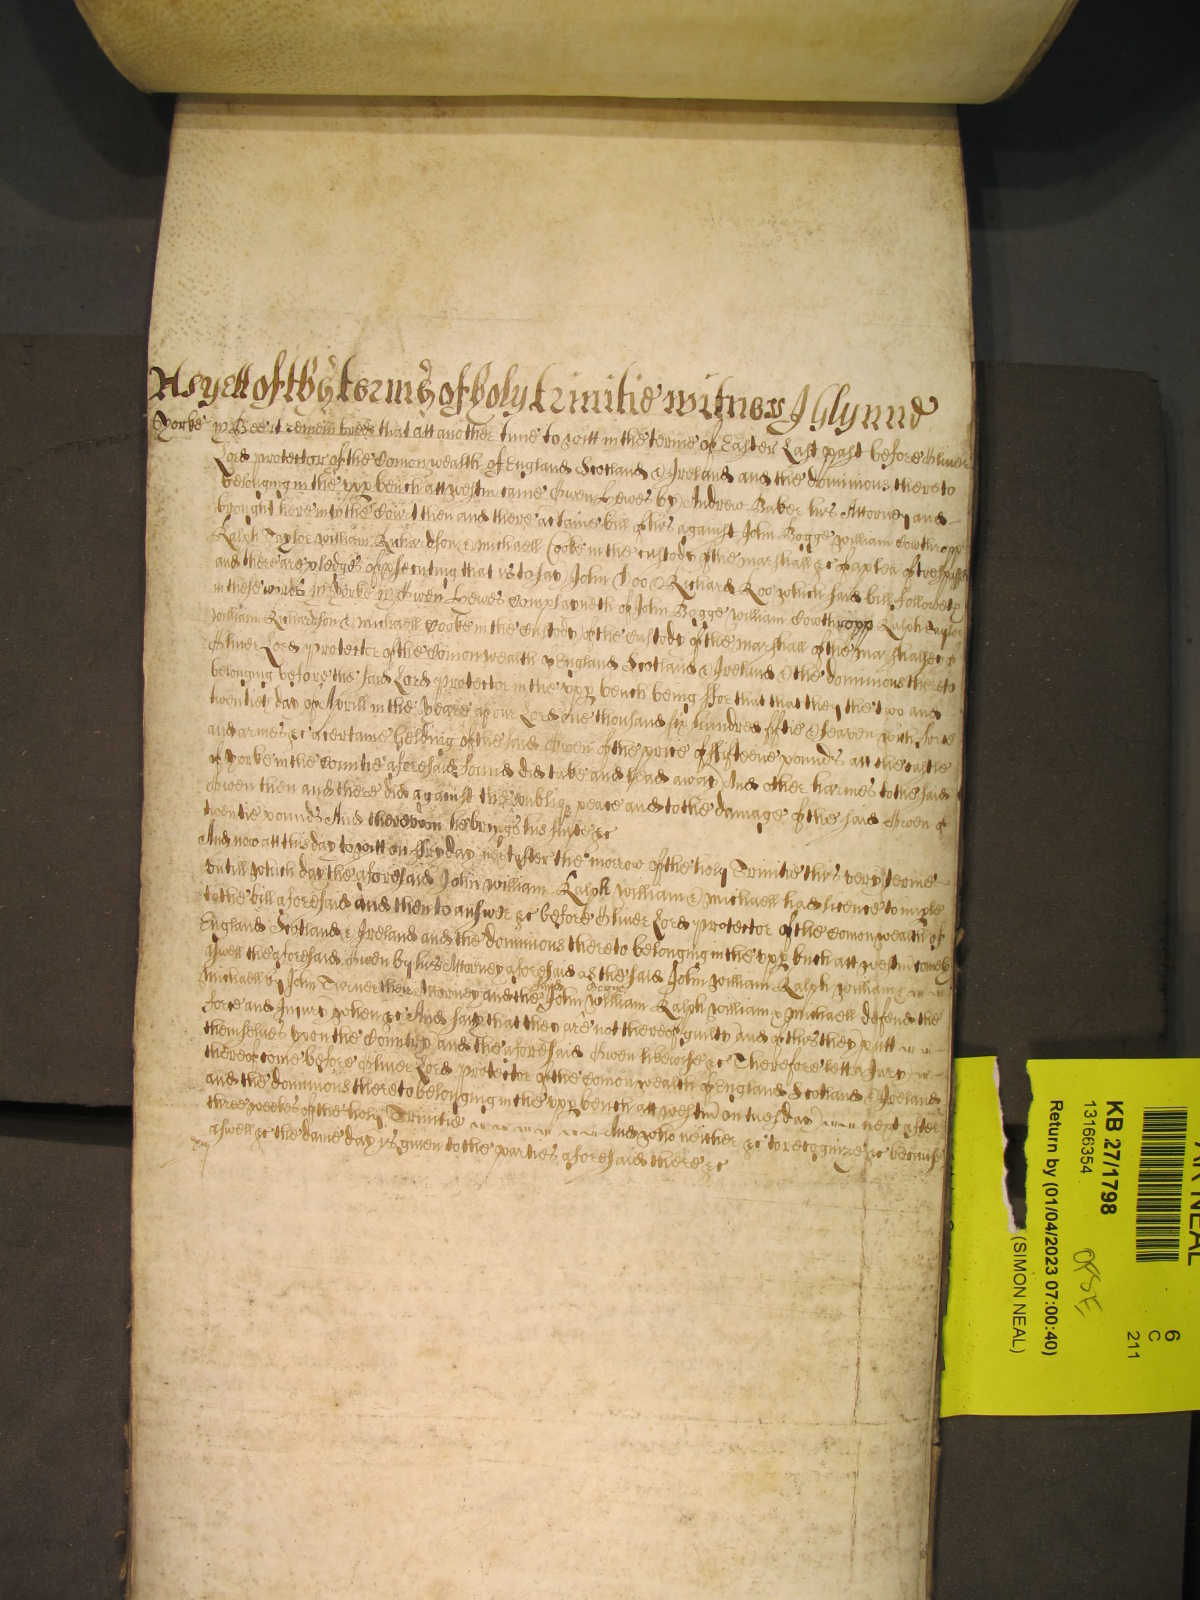 As yett of the terme of holy trinitie witnes J Glynne
Yorke ss Bee it remembred that att another time to witt in the terme of Easter Last past before Oliver
Lord protector of the Comonwealth of England Scotland & Ireland and the dominions thereto
belonging in the upp bench att westm came Owen Hewes by Andrew Baker his Attorney and
brought here into the Court then and there a certaine bill of his against John Bogge William Cowthropp
Ralph Taylor William Richardson & Michaell Cooke in the custody of the marshall &c of a plea of trespas
and there are pledges of prosecuting that is to say John Doo & Richard Roo which said bill followeth
in these words ss Yorke ss Owen Hewes Complayneth of John Bogge William Cowthropp Ralph Taylor
William Richardson & Michaell Cooke in the Custody of the Custody of the marshall of the marshallsey of
Oliver Lord protector of the Comonwealth of England Scotland & Ireland & the dominions thereto
belonging before the said Lord protector in the upp bench being ffor that that they the two and
twentiet day of Aprill in the Yeare of our Lord one thousand six hundred fiftie & seaven with force
and armes &c a certaine helding of the said Owen of the price of fifteene pounds att the castle
of Yorke in the Countie aforesaid found did take and lead away And other harmes to the said
Owen then and there did against the publique peace and to the damage of the said Owen of
twentie pounds And thereupon he brings his suite &c
And now att this day to witt on ffryday next after the morrow of the holy Trinitie this very terme
untill which day the aforesaid John William Ralph William & Michaell had licence to imple
to the bill aforesaid and then to answer &c before Oliver Lord protector of the Comonwealth of
England Scotland & Ireland and the dominions thereto belonging in the upp bench att westm cometh
aswell the aforesaid Owen by his Attorney aforesaid as the said John William Ralph William &
Michaell by John Turner their Attorney and the said John Bogge William Ralph William & Michaell defend the
force and Injury when &c And say that they are not thereof guilty and of this they putt
themselves upon the Country and the aforesaid Owen likewise &c Therefore lett a Jury
thereof come before Oliver Lord protector of the Comonwealth of England Scotland & Ireland
and the dominions thereto belonging in the upp bench att westm on tuesday next after
three weekes of the holy Trinitie And who neither &c to recognize &c because
aswell &c the same day is given to the parties aforesaid there &c
KB 27/1798
13166354
Return by (01/04/2023 07:00:40)
(SIMON NEAL)
6
C
211